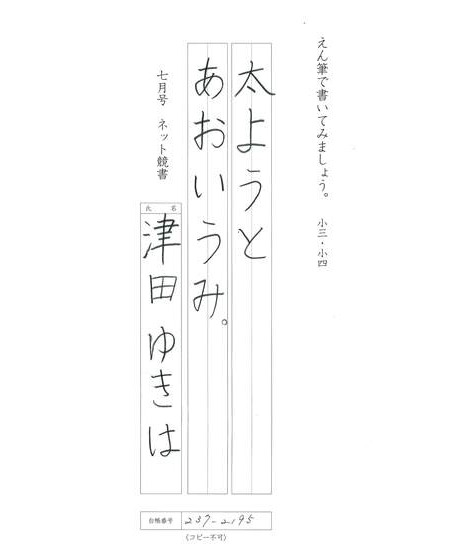 えん筆で書いてみましょう。 小三・小四
太ようと
あおいうみ。
七月号 ネット競書
氏名
津田ゆきは
台帳番号 237-2195
(コピー不可)